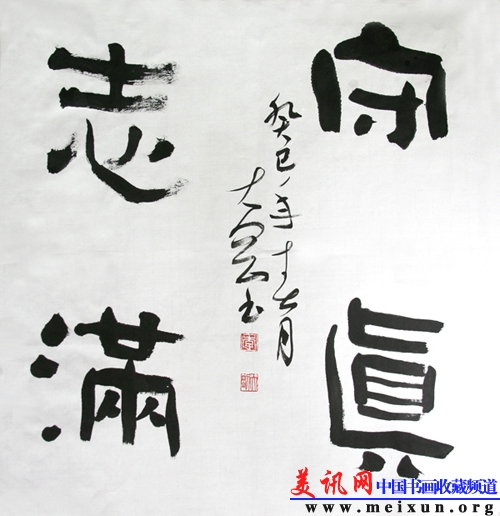 守眞
志滿
癸巳年七月
大书
美讯网 中国书画收藏频道
www.meixun.org